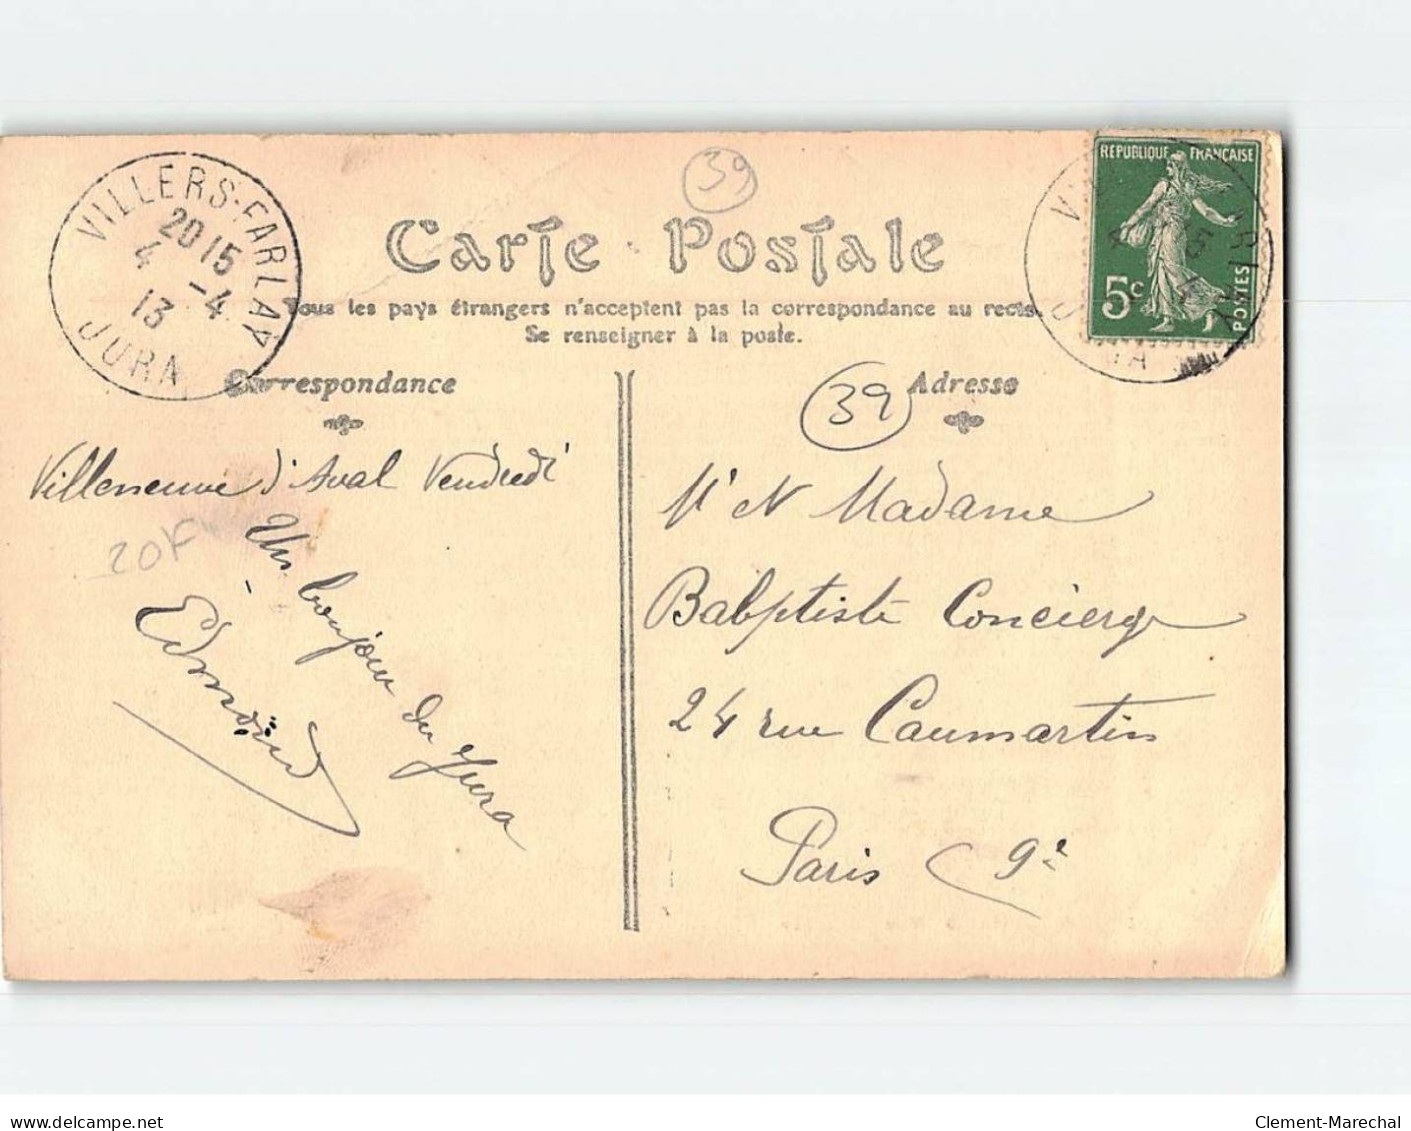 VILLERS-FARLAY
2015
4 -4
13
JURA
39
RÉPUBLIQUE FRANÇAISE
5c
POSTES
Carte Postale
Tous les pays étrangers n'acceptent pas la correspondance au recto.
Se renseigner à la poste.
Correspondance
Villeneuve d'Aval Vendredi
20F
Un bonjour du Jura
Edmond
39
Adresse
Mr et Madame
Babptiste Concierge
24 rue Caumartin
Paris 9e
Clement-Marechal